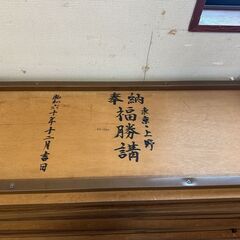 奉納
東京・上野
福勝講
昭和六十年十二月吉日